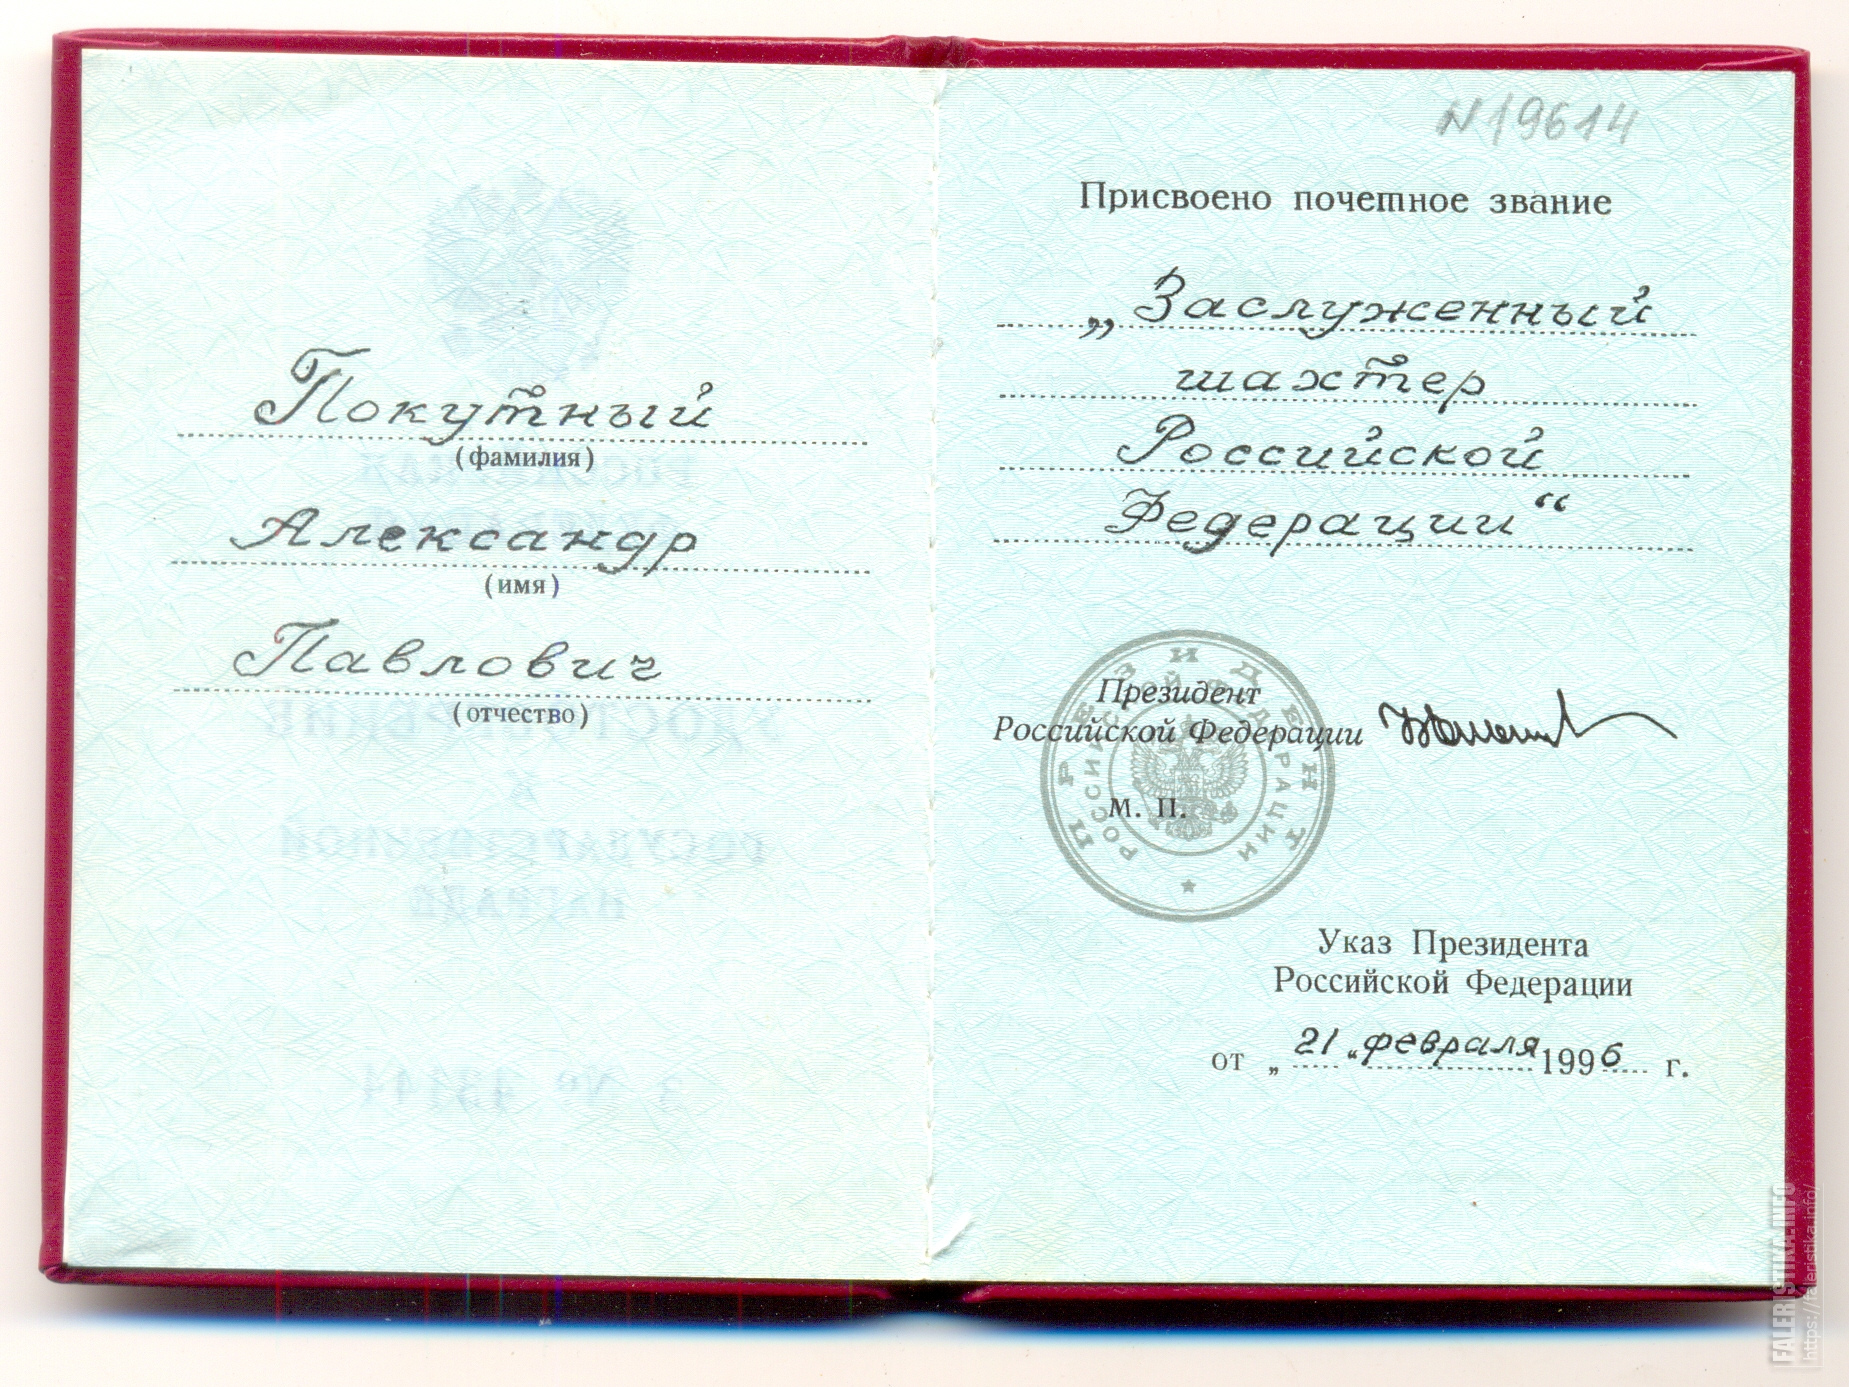 Покутный
(фамилия)
Александр
(имя)
Павлович
(отчество)
N19614
Присвоено почетное звание
„Заслуженный
шахтер
Российской
Федерации“
Президент
Российской Федерации
М. П.
ПРЕЗИДЕНТ
РОССИЙСКОЙ ФЕДЕРАЦИИ
Указ Президента
Российской Федерации
от „21“ февраля 1996 г.
FALERISTIKA.INFO
https://faleristika.info/